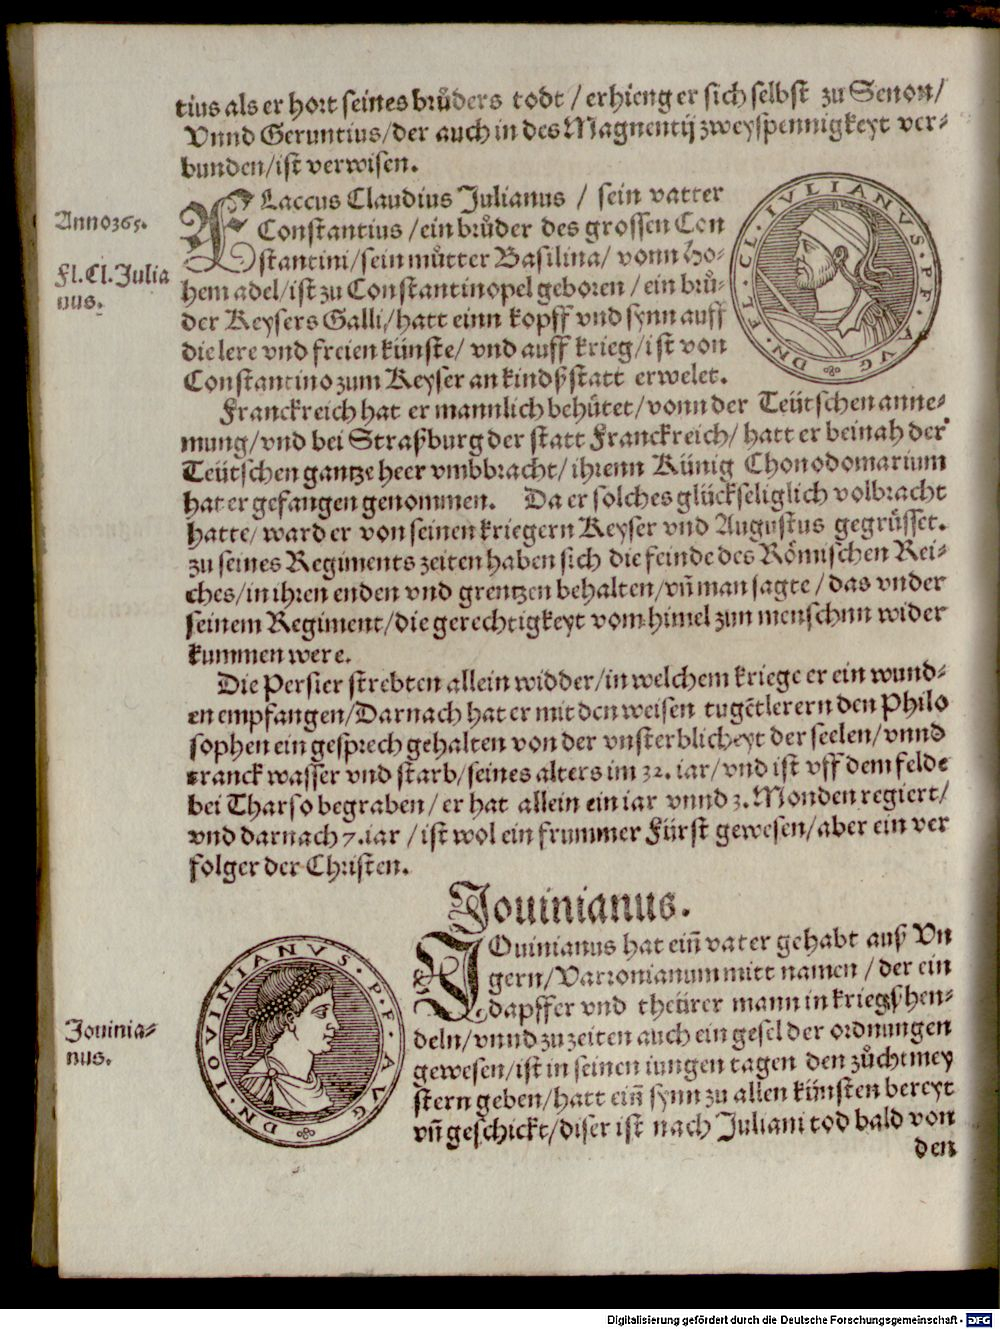 tius als er hort seines brůders todt / erhieng er sich selbst zu Senon/
Vnnd Geruntius/der auch in des Magnentij zweyspennigkeyt ver⸗
bunden/ist verwisen.
Anno 365.
Fl. Cl. Julia
nus.
FLaccus Claudius Julianus / sein vatter
Constantius /ein brůder des grossen Con
stantini/sein můtter Basilina/ vonn Ho⸗
hem adel/ist zu Constantinopel geboren / ein brů⸗
der Keysers Galli/hatt einn kopff vnd synn auff
die lere vnd freien künste/ vnd auff krieg/ist von
Constantino zum Keyser an kindß statt erwelet.
DN. FL. CL. IVLIANVS. P. F. AVG
Franckreich hat er mannlich behůtet/vonn der Teütschen anne⸗
mung/vnd bei Straßburg der statt Franckreich/ hatt er beinah der
Teütschen gantze heer vmbbracht/ihrenn Künig Chonodomarium
hat er gefangen genommen. Da er solches glückseliglich volbracht
hatte/ ward er von seinen kriegern Keyser vnd Augustus gegrüsset.
zu seines Regiments zeiten haben sich die feinde des Römischen Rei⸗
ches/in ihren enden vnd grentzen behalten/vñ man sagte / das vnder
seinem Regiment/die gerechtigkeyt vom himel zun menschnn wider
kummen were.
Die Persier strebten allein widder/in welchem kriege er ein wund⸗
en empfangen/Darnach hat er mit den weisen tugẽtlerern den Philo
sophen ein gesprech gehalten von der vnsterblicheyt der seelen/vnnd
tranck wasser vnd starb/seines alters im 32. iar/vnd ist vff dem felde
bei Tharso begraben/er hat allein ein iar vnnd 3. Monden regiert/
vnd darnach 7. iar /ist wol ein frummer Fürst gewesen/aber ein ver
folger der Christen.
Jouinianus.
DN. IOVINIANVS. P. F. AVG
Jouinia⸗
nus.
JOuinianus hat einñ vater gehabt auß Vn
gern/Varronianum mitt namen /der ein
dapffer vnd theürer mann in kriegshen⸗
deln/vnnd zu zeiten auch ein gesel der ordnungen
gewesen/ist in seinen iungen tagen den zůchtmey
stern geben/hatt einñ synn zu allen künsten bereyt
vñ geschickt/diser ist nach Juliani tod bald von
den
Digitalisierung gefördert durch die Deutsche Forschungsgemeinschaft - DFG